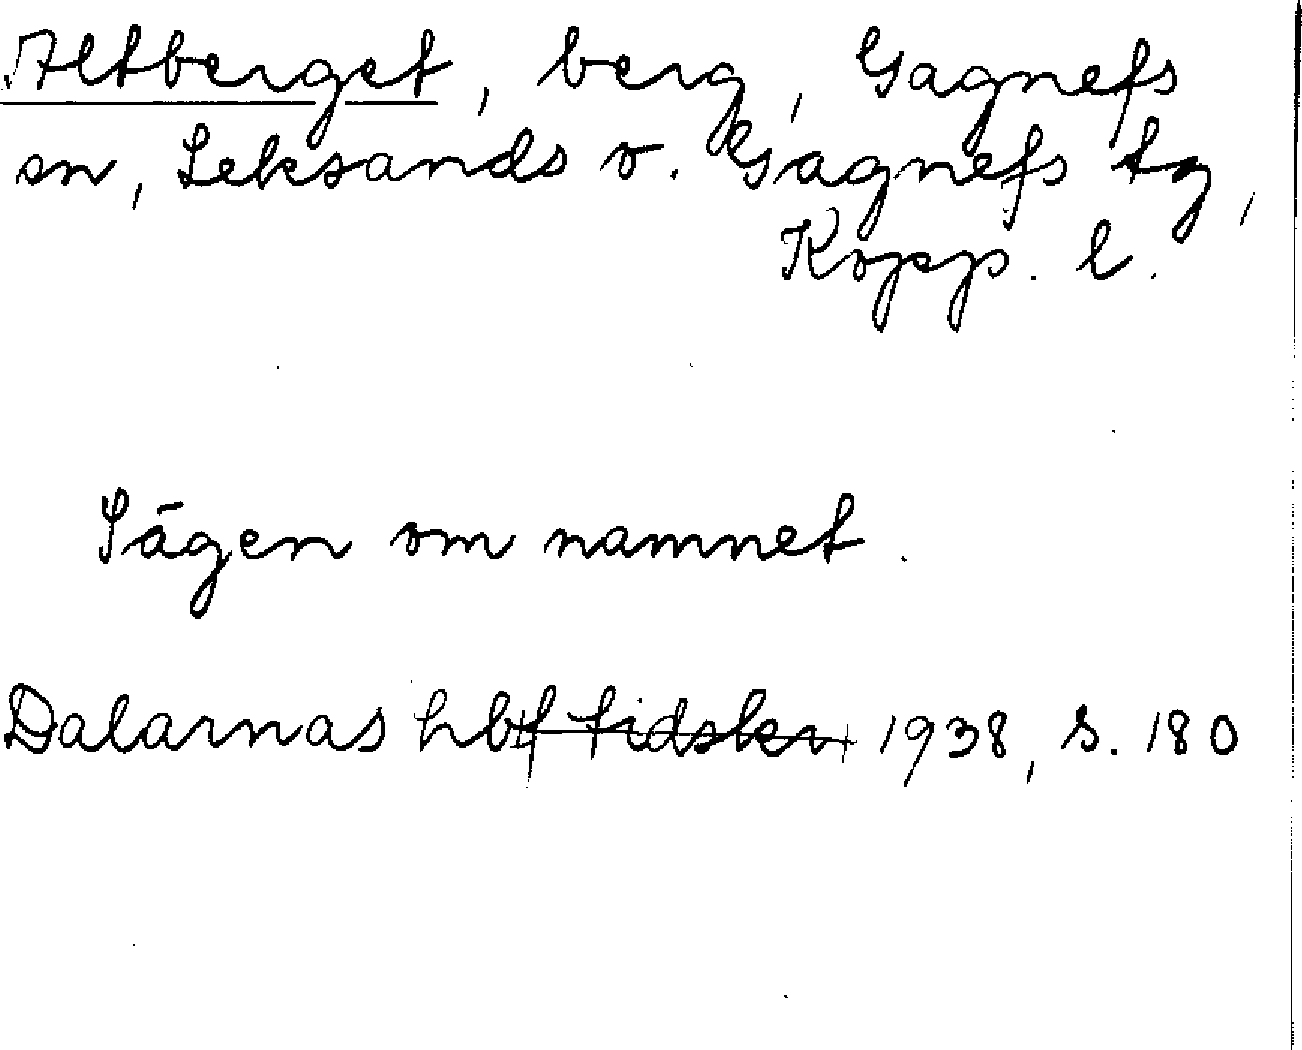 Altberget, berg, Gagnefs
sn, Leksands o. Gagnefs tg,
Kopp. l.
Sägen om namnet.
Dalarnas hbf tidskr 1938, s. 180